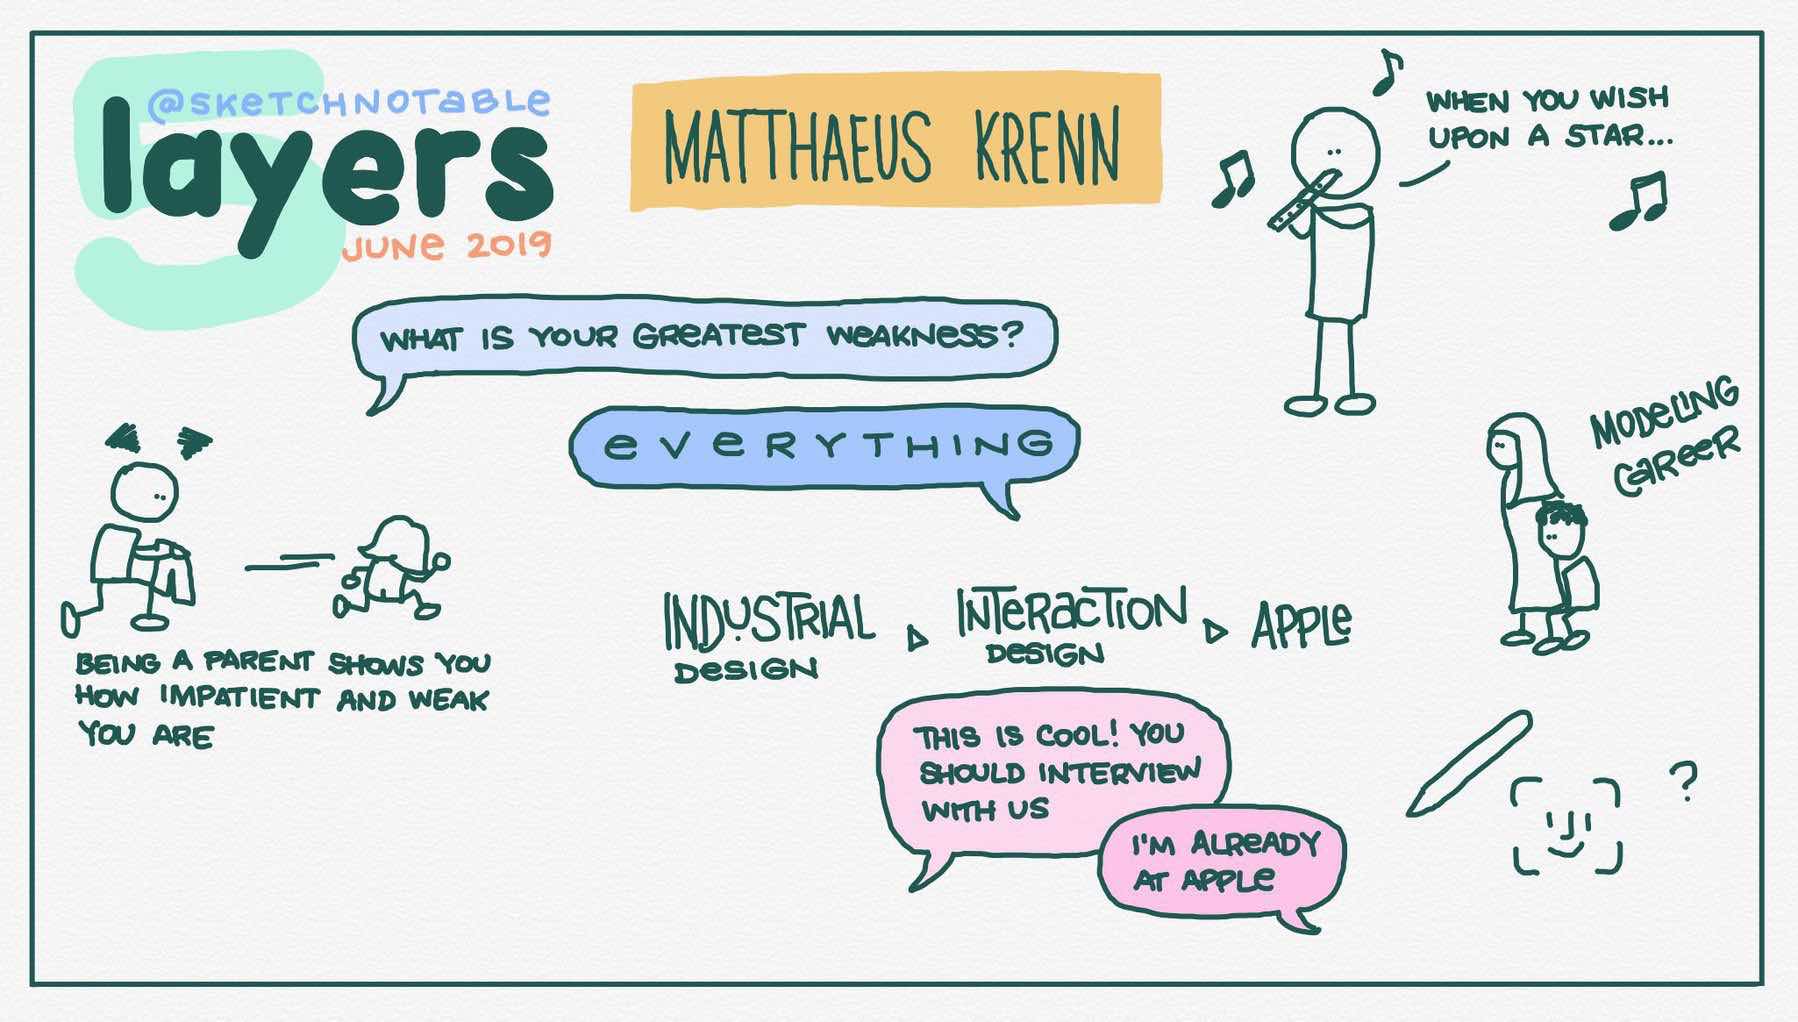 @SKETCHNOTABLE
5
layers
JUNE 2019
MATTHAEUS KRENN
WHEN YOU WISH
UPON A STAR...
WHAT IS YOUR GREATEST WEAKNESS?
EVERYTHING
MODELING
CAREER
BEING A PARENT SHOWS YOU
HOW IMPATIENT AND WEAK
YOU ARE
INDUSTRIAL
DESIGN
INTERACTION
DESIGN
APPLE
THIS IS COOL! YOU
SHOULD INTERVIEW
WITH US
I'M ALREADY
AT APPLE
?